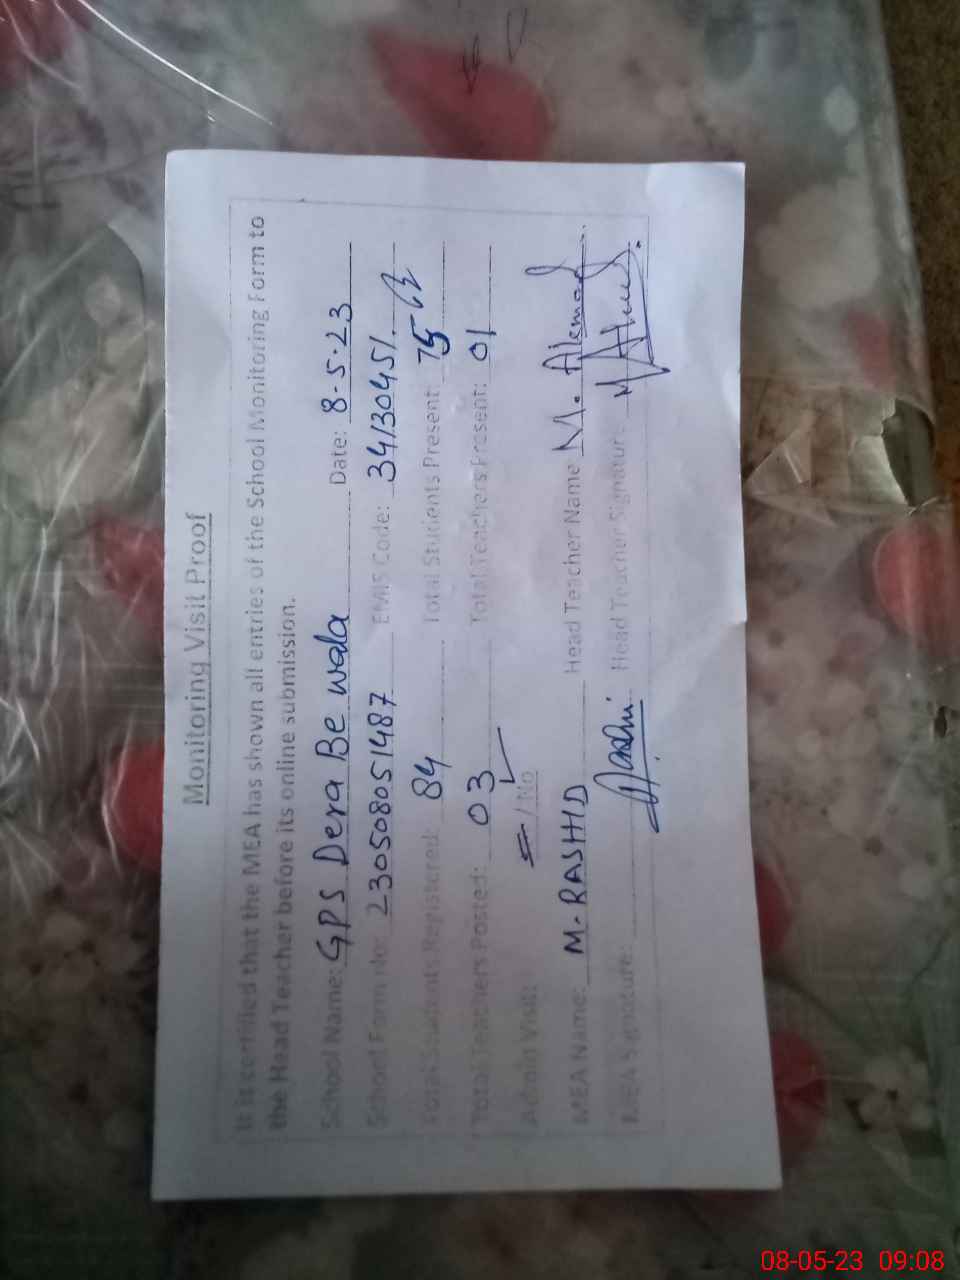 Monitoring Visit Proof
It is certified that the MEA has shown all entries of the School Monitoring Form to
the Head Teacher before its online submission.
School Name: GPS Dera Be wala Date: 8-5-23
School Form No: 230508051487 EMIS Code: 34130451
Total Students Registered: 84 Total Students Present: 75
Total Teachers Posted: 03 Total Teachers Present: 01
Admin Visit: / No
MEA Name: M. RASHID Head Teacher Name M.
MEA Signature: Head Teacher Signature
08-05-23 09:08